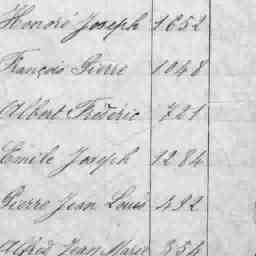 Honoré Joseph 1652
François Pierre 1048
Albert Fréderic 721
Emile Joseph 1284
Pierre Jean Louis 492
Alfred Jean Marie 354